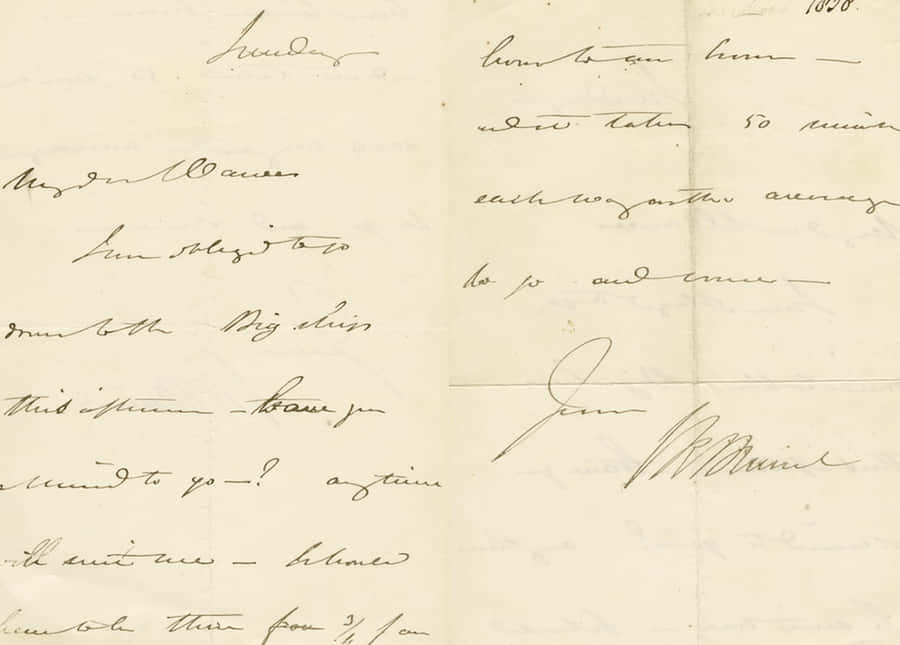 Sunday
My dear
I am obliged to go
down to the Big ship
this afternoon – Have you
a mind to go – ? any time
will suit me – I should
have to be there from 3/4 of an
1858.
hour to an hour –
and it takes 50 minutes
each way on the average
to go and come –
Yours
I K Brunel